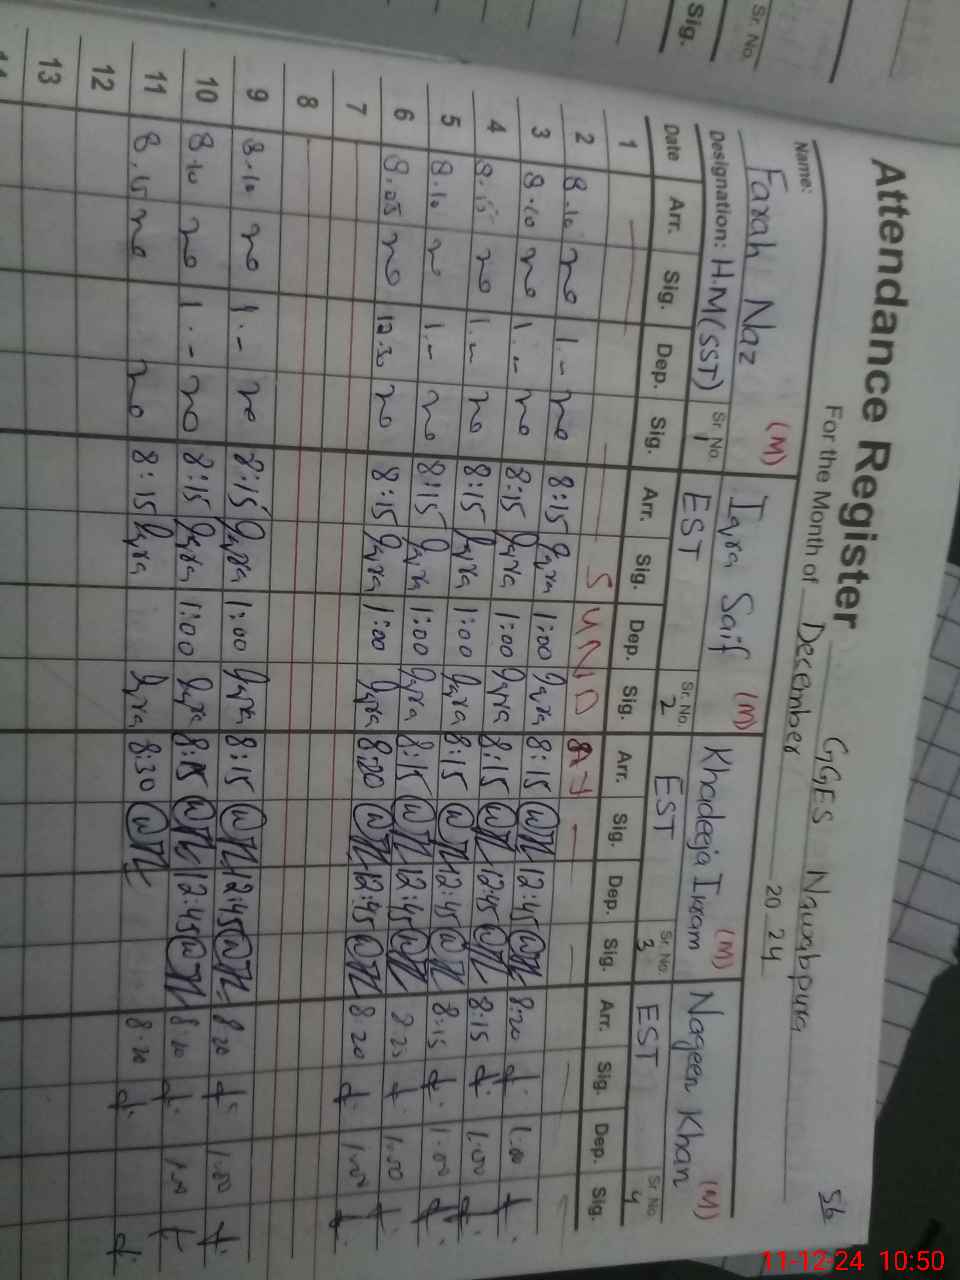 Sr. No.
Sig.
56
Attendance Register GGES Naurabpura
For the Month of December 2024
Name: Farah Naz (M) Iqra Saif (M) Khadeeja Imam (M) Nageen Khan (M)
Designation: H.M(SST) Sr. No. 1 EST Sr. No. 2 EST Sr. No. 3 EST Sr. No. 4
Date Arr. Sig. Dep. Sig. Arr. Sig. Dep. Sig. Arr. Sig. Dep. Sig. Arr. Sig. Dep. Sig.
1 — SUNDAY —
2 8.10 1.- 8:15 Iqra 1:00 Iqra 8:15 12:45 8:20 1.00
3 8.10 1.- 8:15 Iqra 1:00 Iqra 8:15 12:45 8:15 1.00
4 8.15 1.- 8:15 Iqra 1:00 Iqra 8:15 12:45 8:15 1.00
5 8.10 1.- 8:15 Iqra 1:00 Iqra 8:15 12:45 8.23 1.00
6 8.05 12.30 8:15 Iqra 1:00 Iqra 8:20 12:45 8.20 1.00
7
8
9 8.10 1.- 8:15 Iqra 1:00 Iqra 8:15 12:45 8.20 1.00
10 8.10 1.- 8:15 Iqra 1:00 Iqra 8:15 12:45 8.20 1.00
11 8.15 8:15 Iqra Iqra 8:30 8.20
12
13
11-12-24 10:50